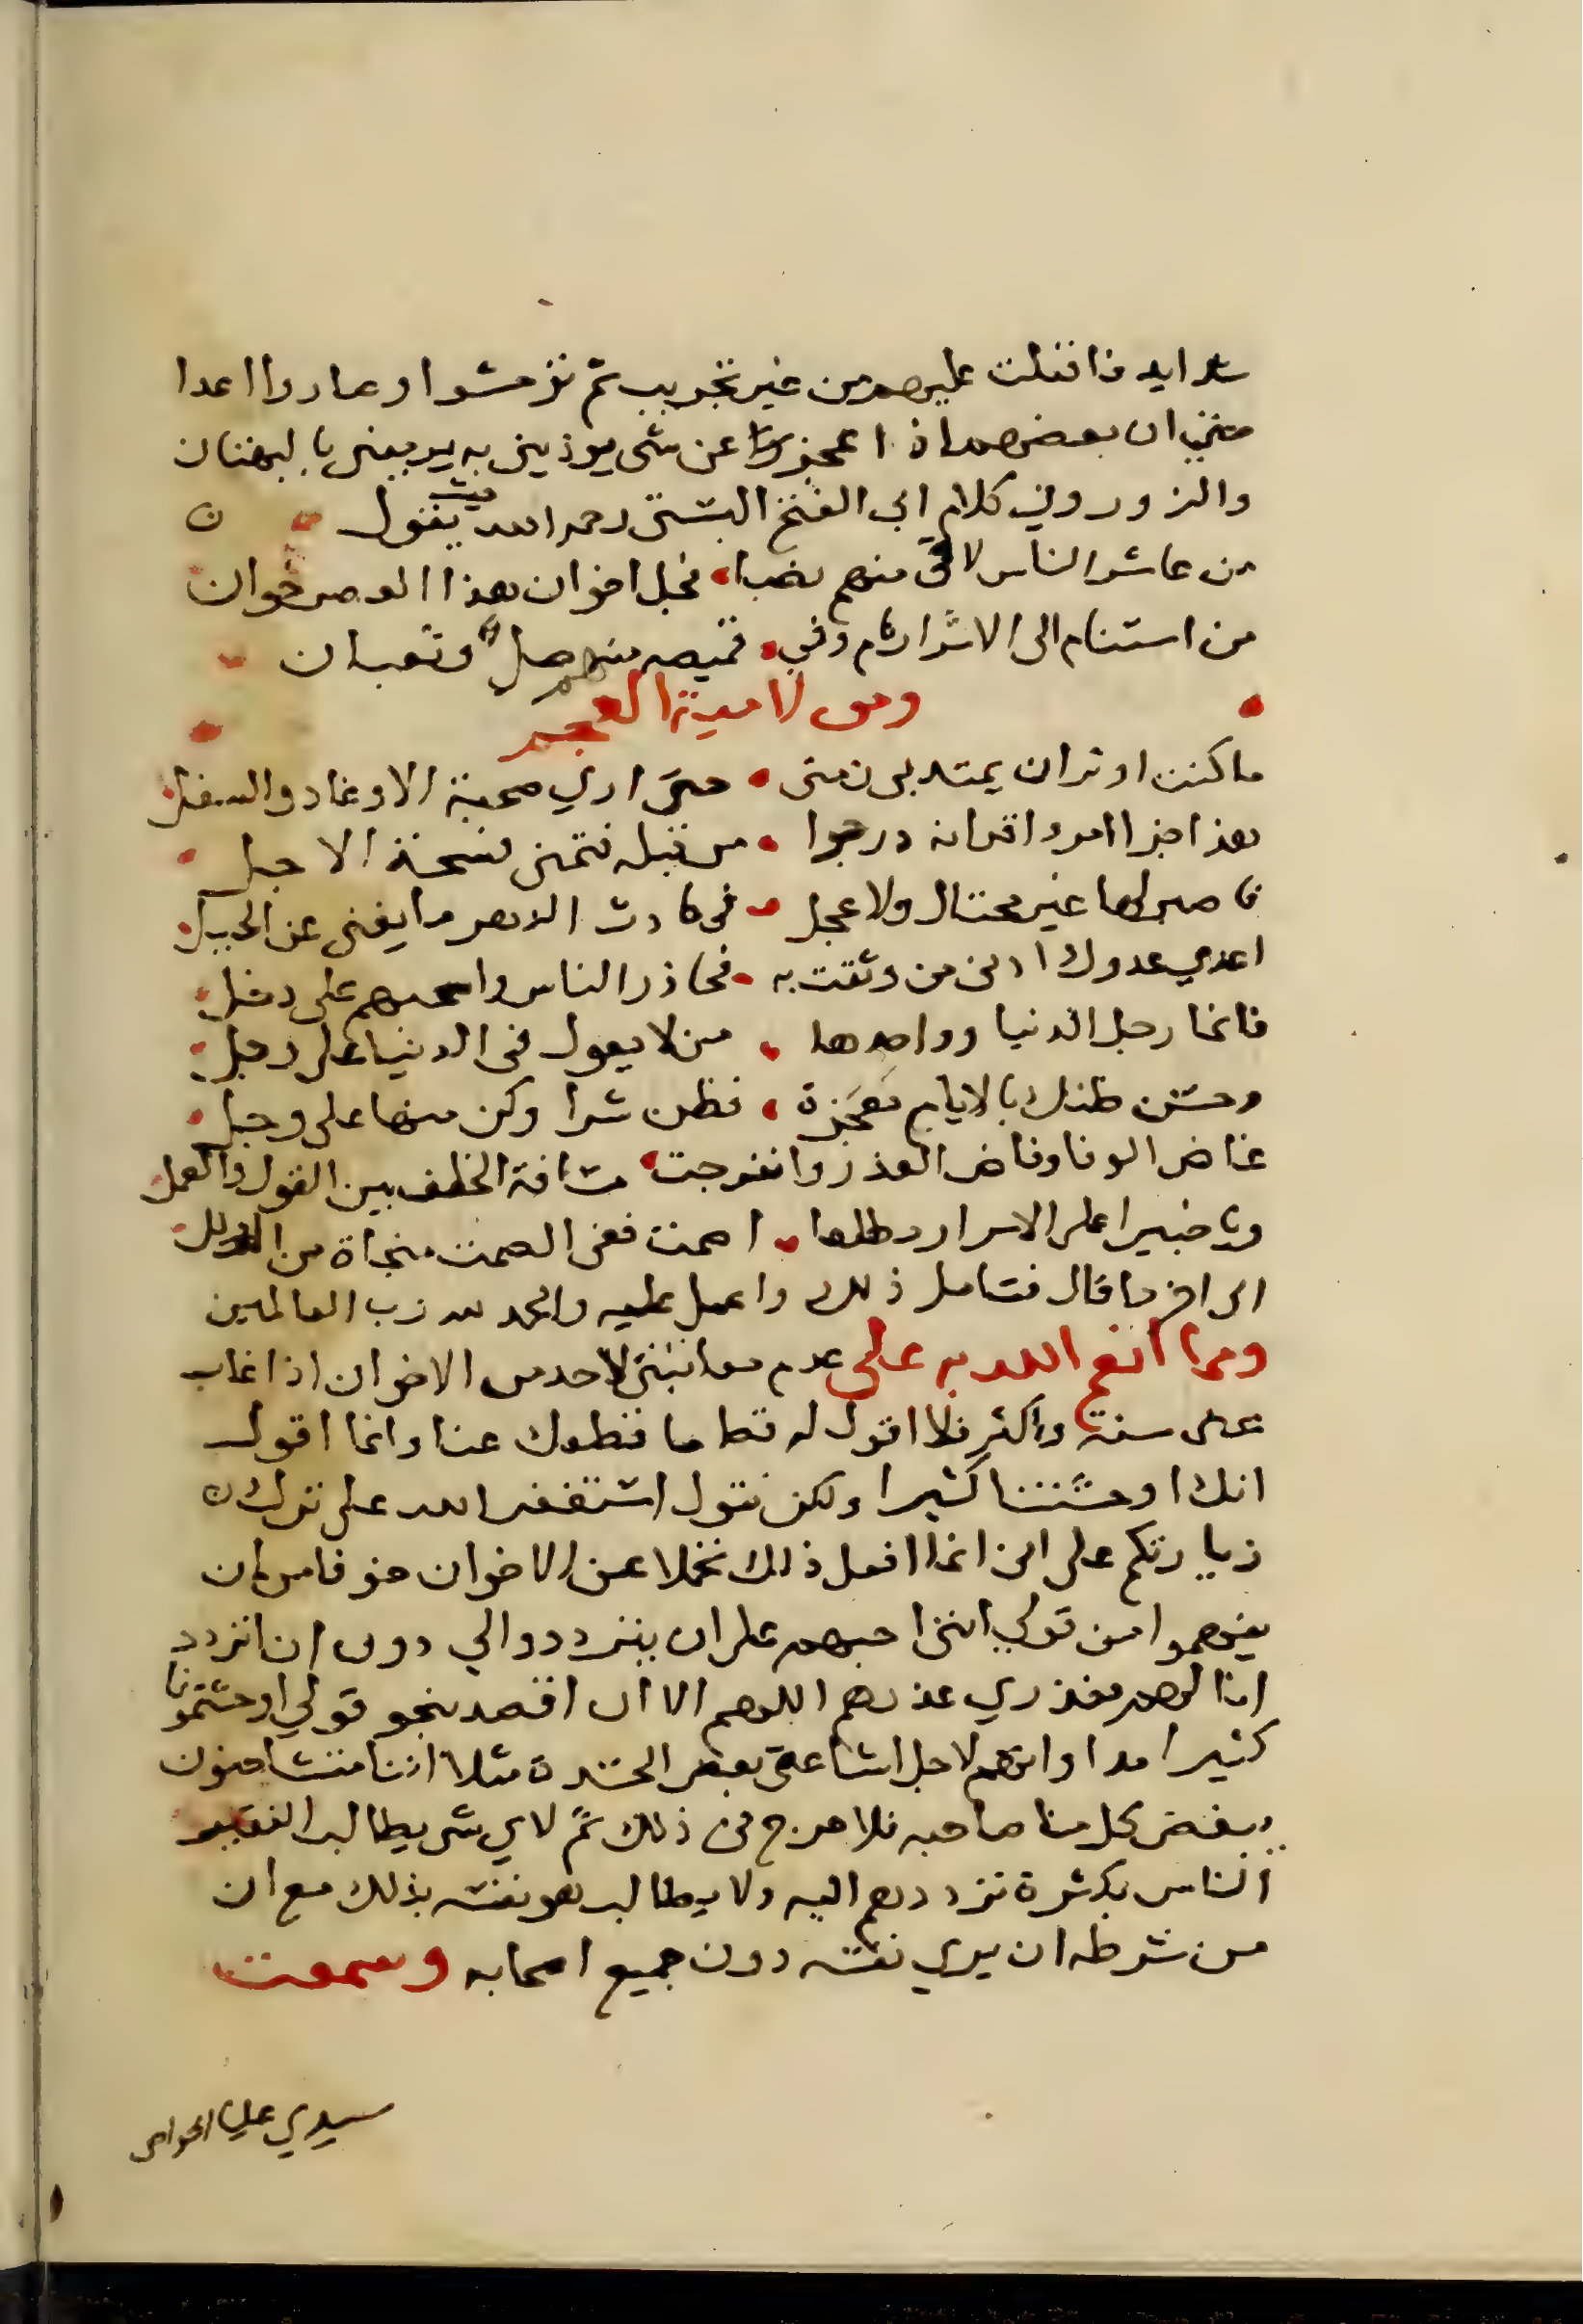 شدايد فاقبلت عليهم من غير تجريب ثم توحشوا وعادوا اعدا
حتي ان بعضهم اذا اعجزوا عن شي يوذيني به يرميني بالبهتان
والزور وفي كلام ابي الفتح البستي رحمه الله حيث يقول
من عاشر الناس لاقى منهم نصبا • فجل اخوان هذا الدهر خوان
من استنام الى الاشرار نام وفي • قميصه منهم صل وثعبان
ومن لامية العجم
ما كنت اوثر ان يمتد بي زمني • حتى اري صحبة الاوغاد والسفل
هذا جزا امرء اقرانه درجوا • من قبله فتمنى فسحة الاجل
فاصبر لها غير محتال ولا عجل • في حادث الدهر ما يغني عن الحيل
اعدي عدوك ادنى من وثقت به • فحاذر الناس واصحبهم على دخل
فانما رجل الدنيا وواحدها • من لا يعول في الدنيا على رجل
وحسن ظنك بالايام معجزة • فظن شرا وكن منها على وجل
غاض الوفا وفاض الغدر وانفرجت • مسافة الخلف بين القول والعمل
ويا خبيرا على الاسرار مطلعا • اصمت ففي الصمت منجاة من الزلل
الى اخر ما قال فتامل ذلك واعمل عليه والحمد لله رب العالمين
ومما انعم الله به علي عدم معاتبتي لاحد من الاخوان اذا غاب
عني سنة واكثر فلا اقول له قط ما قطعك عنا وانما اقول
انك اوحشتنا كثيرا ولكن نقول استغفر الله على ترك
زيارتكم على اني انما افعل ذلك تحملا عن الاخوان خوفا من ان
يفهموا من قولي انني احبهم على ان يترددوا الي دون ان اتردد
انا لهم فعذري عذرهم اللهم الا ان اقصد بنحو قولي اوحشتمونا
كثيرا مداواتهم لاجل اشاعة بعض الحسدة مثلا اننا متشاحنون
يبغض كل منا صاحبه فلا حرج في ذلك ثم لاي شي يطالب الفقير
الناس بكثرة ترددهم اليه ولا يطالب هو نفسه بذلك مع ان
من شرطه ان يري نفسه دون جميع اصحابه وسمعت
سيدي عليا الخواص